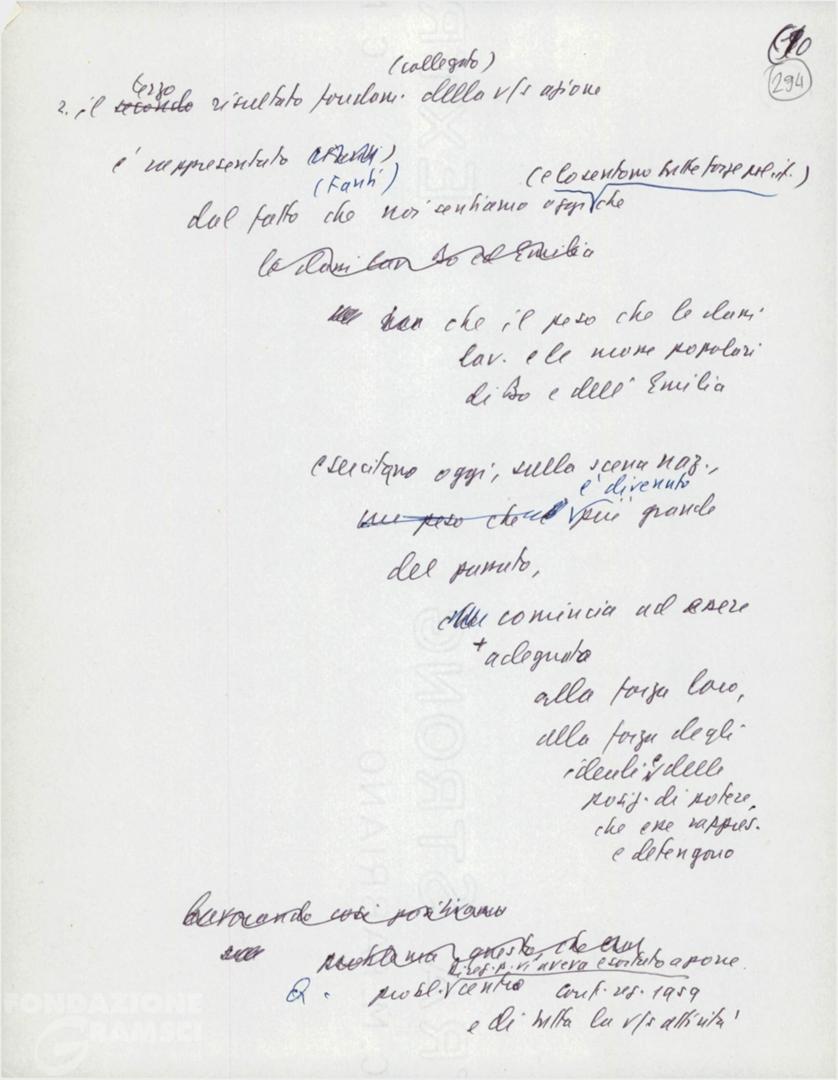 10
294
(collegato)
terzo
2. il secondo risultato fondam. della v/s azione
è rappresentato
(Fanti)
(e lo sentono tutte forze pol. it.)
dal fatto che noi sentiamo oggi che
la classi lav Bo ed Emilia
che il peso che le classi
lav. e le masse popolari
di Bo e dell' Emilia
esercitano oggi, sulla scena naz.,
è divenuto
un peso che è più grande
del passato,
comincia ad essere
+ adeguato
alla forza loro,
alla forza degli
ideali e delle
posiz. di potere,
che esse rappres.
e detengono
Lavorando così
problema questo, che
aveva esortato a porre
Q. probl. centro conf. reg. 1959
e di tutta la v/s attività
FONDAZIONE
GRAMSCI